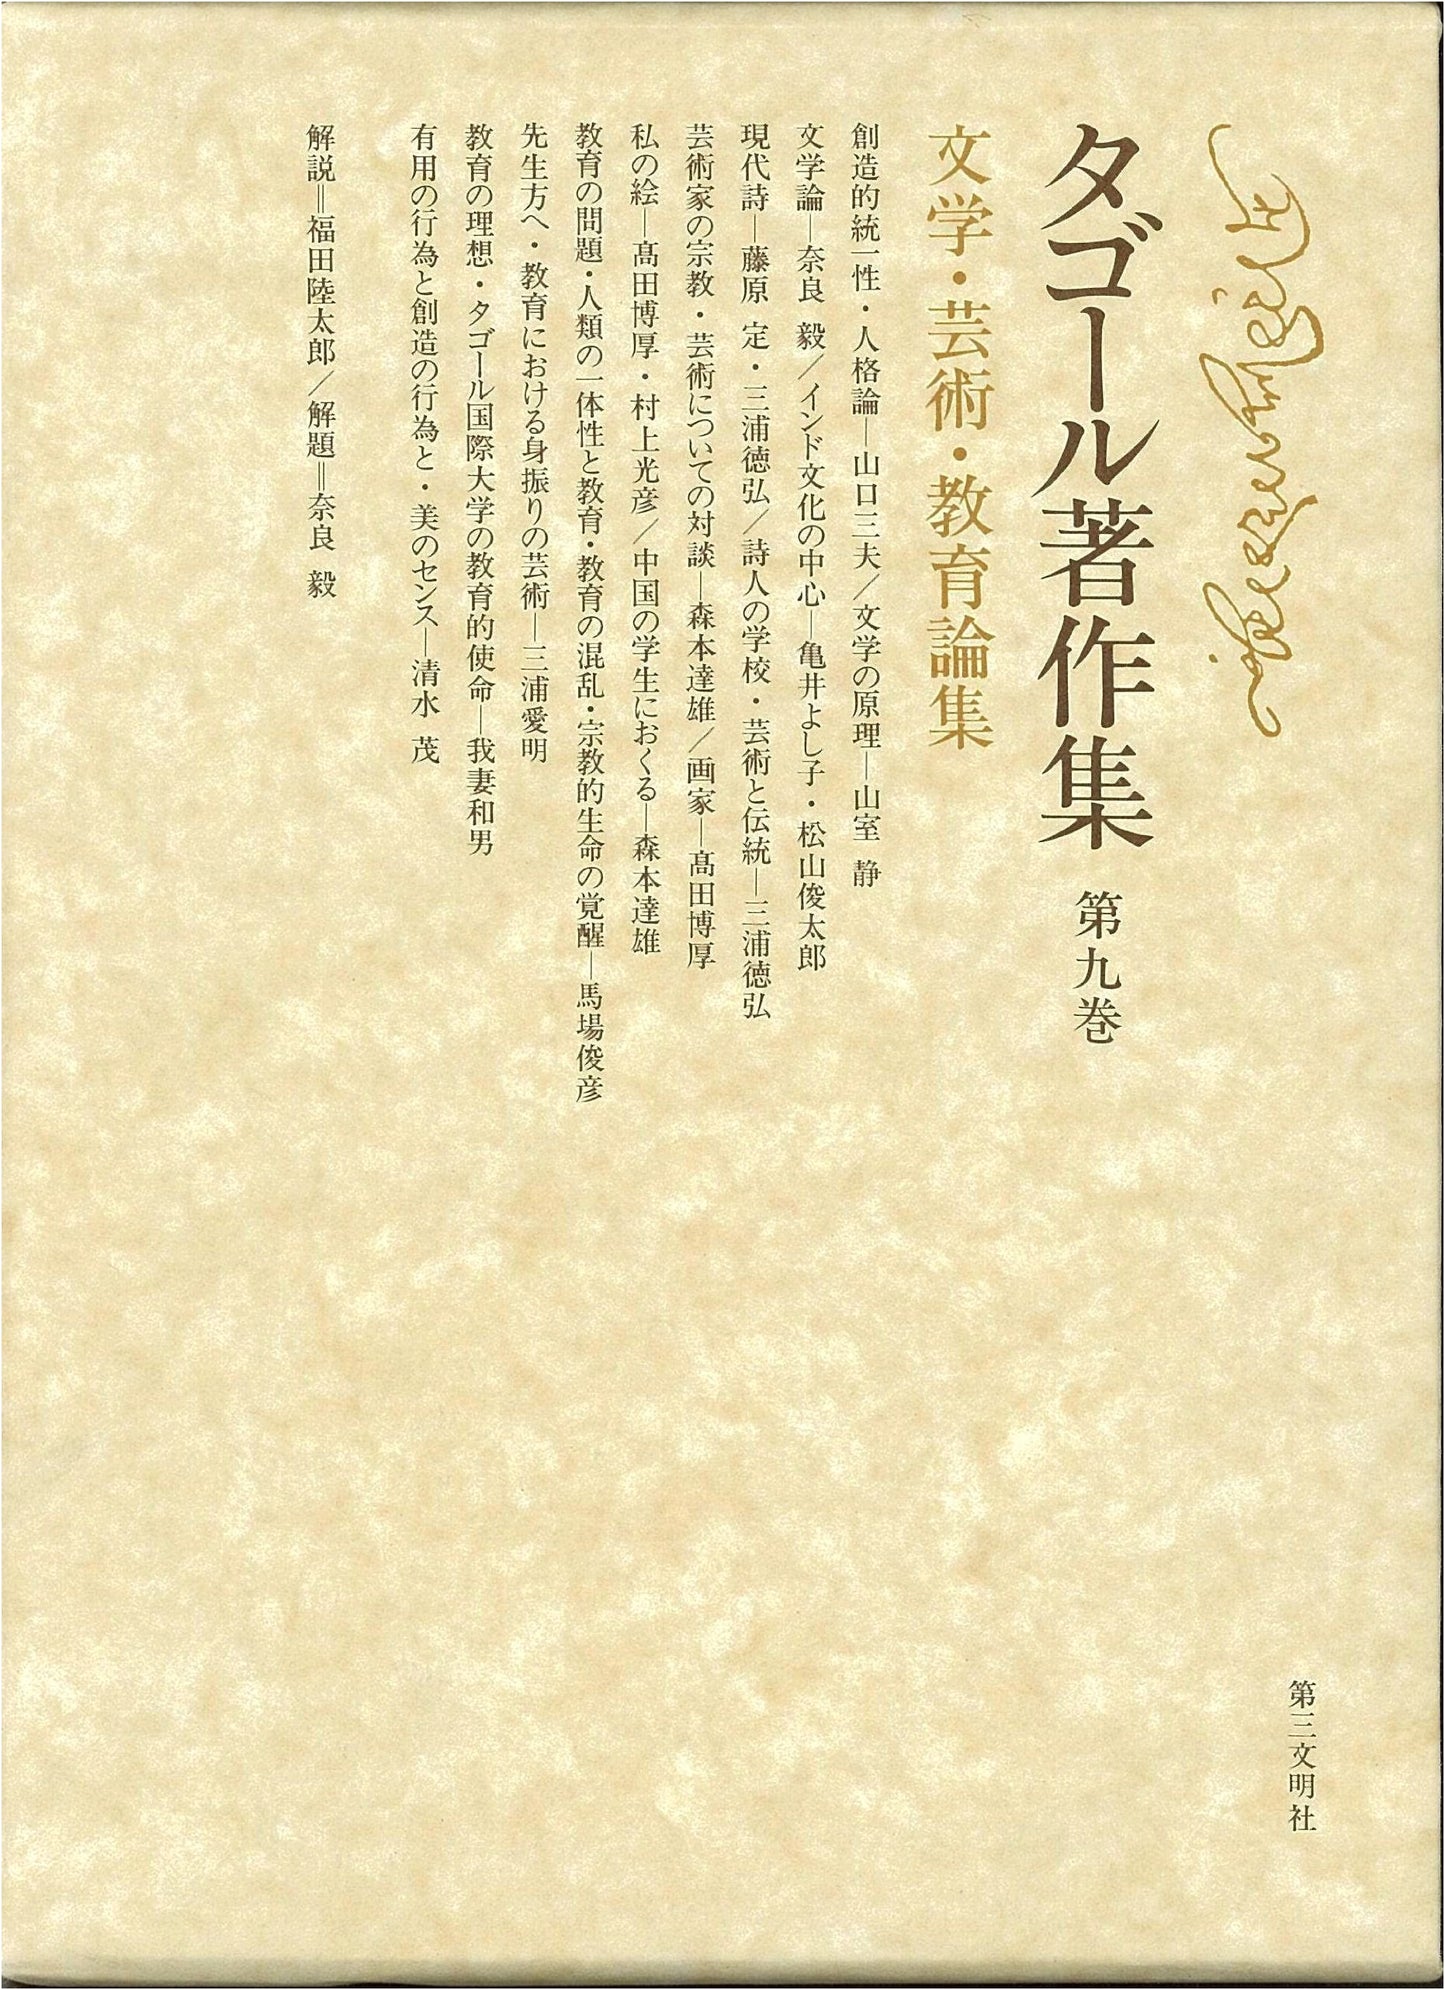 タゴール著作集 第九巻
文学・芸術・教育論集
創造的統一性・人格論—山口三夫／文学の原理—山室 静
文学論—奈良 毅／インド文化の中心—亀井よし子・松山俊太郎
現代詩—藤原 定・三浦徳弘／詩人の学校・芸術と伝統—三浦徳弘
芸術家の宗教・芸術についての対談—森本達雄／画家—髙田博厚
私の絵—髙田博厚・村上光彦／中国の学生におくる—森本達雄
教育の問題・人類の一体性と教育・教育の混乱・宗教的生命の覚醒—馬場俊彦
先生方へ・教育における身振りの芸術—三浦愛明
教育の理想・タゴール国際大学の教育的使命—我妻和男
有用の行為と創造の行為と・美のセンス—清水 茂
解説＝福田陸太郎／解題＝奈良 毅
第三文明社